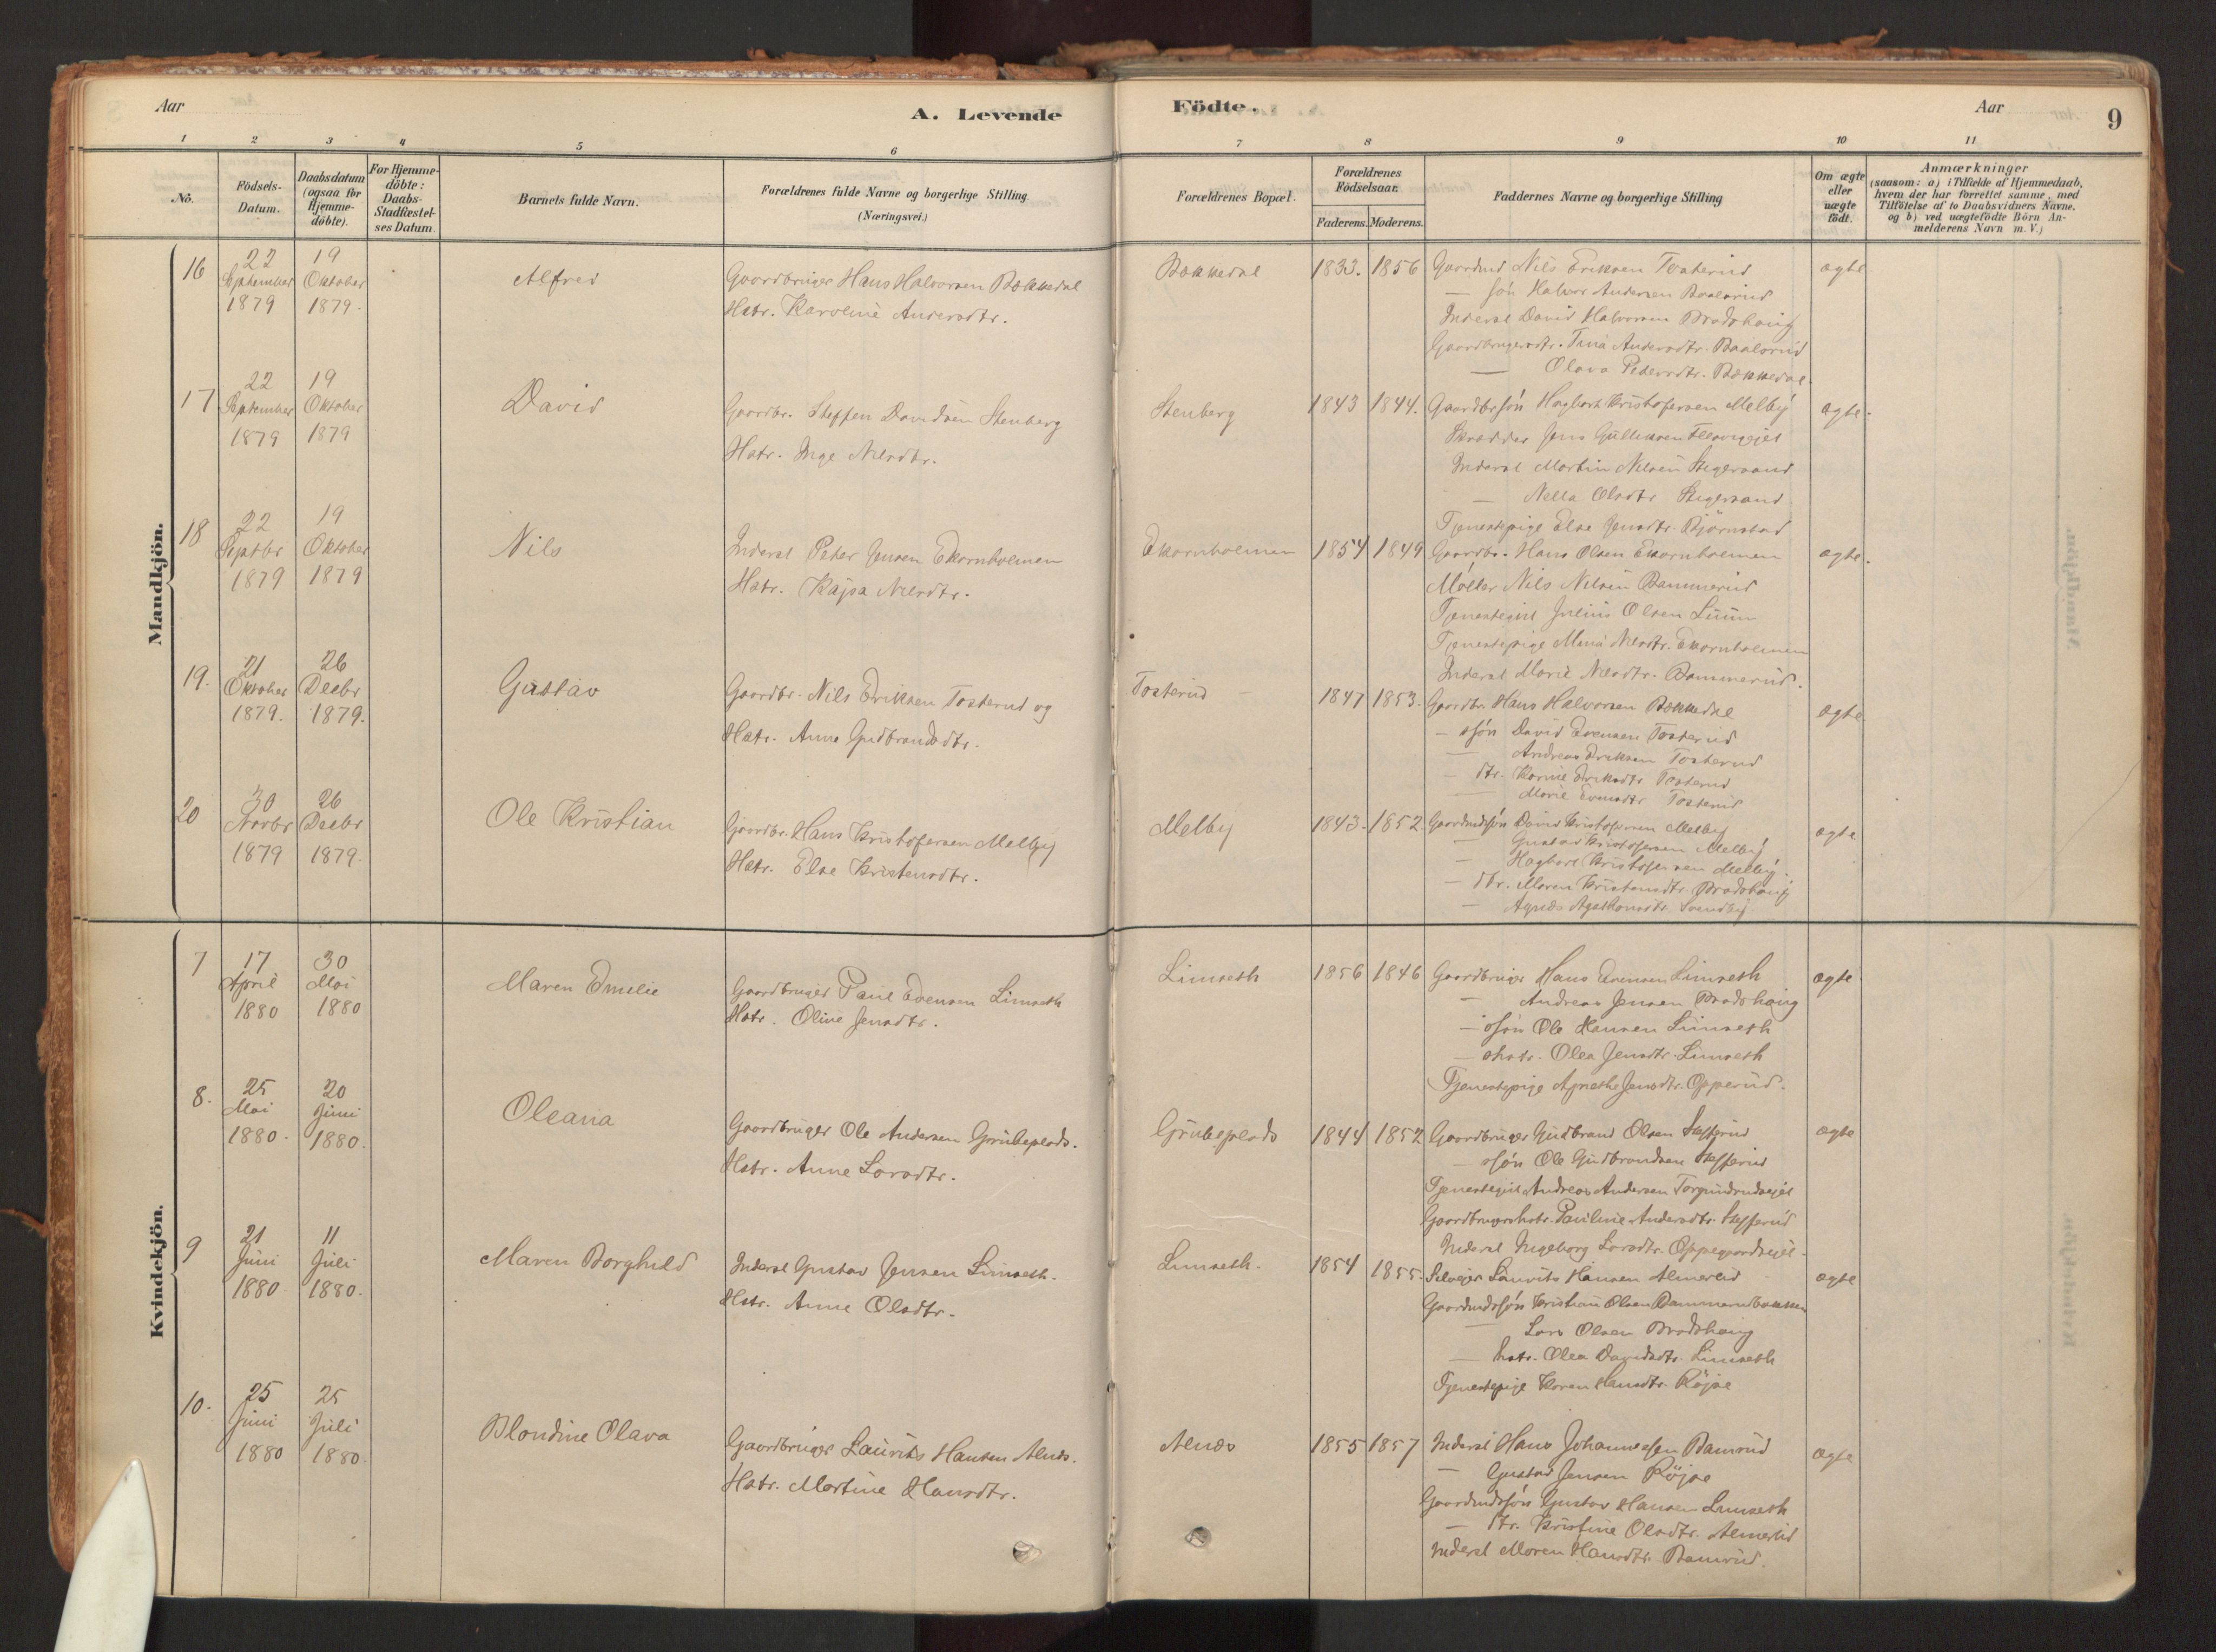 Aar
A. Levende
Födte.
Aar
9
1 2 3 4 5 6 7 8 9 10 11
No.
Födsels-
Datum.
Daabsdatum
(ogsaa for
Hjemme-
döbte).
For Hjemme-
döbte:
Daabs-
Stadfæstel-
ses Datum.
Barnets fulde Navn.
Forældrenes fulde Navne og borgerlige Stilling
(Næringsvei.)
Forældrenes Bopæl.
Forældrenes
Födselsaar.
Faderens. Moderens.
Faddernes Navne og borgerlige Stilling
Om ægte
eller
uægte
födt.
Anmærkninger
(saasom: a) i Tilfælde af Hjemmedaab,
hvem der har forrettet samme, med
Tilföielse af to Daabsvidners Navne,
og b) ved uægtefödte Börn An-
melderens Navn m. V.)
Mandkjön.
16
22
September
1879
19
Oktober
1879.
Alfred
Gaardbruger Hans Halvorsen Bækkedal
Hstr. Karoline Andersdtr.
Bækkedal
1833. 1856
Gaardmd Nils Eriksen Tosterud
— sön Halvor Andersen Baalsrud
Inderst David Halvorsen Brodshaug
Gaardbrugersdtr. Tina Andersdtr. Baalsrud
— Olava Petersdtr. Bækkedal.
ægte
17
22
September
1879
19
Oktober
1879
David
Gaardbr. Steffen Davidsen Stenberg
Hstr. Inge Nilsdtr.
Stenberg
1843 1844.
Gaardbrsön Hagbart Kristofersen Melby
Skrædder Jens Gulliksen
Inderst Martin Nilsen Stegersand
— Nella Olsdtr Stegersand
Tjenestepige Else Jensdtr. Björnstad
ægte.
18
22
Septbr
1879
19
Oktober
1879
Nils
Inderst Peter Jensen Ekornholmen
Hstr. Kajsa Nilsdtr.
Ekornholmen
1854 1849
Gaardbr. Hans Olsen Ekornholmen
Möller Nils Nilsen Bammerud
Tjenestegut Julius Olsen Luum
Tjenestepige Mina Nilsdtr. Ekornholmen
Inderst Marie Nilsdtr. Bammerud.
ægte.
19.
21
Oktober
1879.
26
Decbr
1879.
Gustav
Gaardbr. Nils Eriksen Tosterud og
Hstr. Anne Gudbrandsdtr.
Tosterud
1847 1853.
Gaardbr. Hans Halvorsen Bækkedal
— ssön David Evensen Tosterud
— Andreas Eriksen Tosterud
— dtr. Karine Eriksdtr Tosterud
— Marie Evensdtr Tosterud
ægte
20
30
Novbr
1879
26
Decbr
1879.
Ole Kristian
Gaardbr. Hans Kristofersen Melby
Hstr. Else Kristensdtr.
Melby
1843. 1852.
Gaardmdssön David Kristofersen Melby
— Gustav Kristofersen Melby
— Hagbart Kristofersen Melby.
— dtr. Maren Kristensdtr. Brodshaug
— Agnes Agathonsdtr.
ægte
Kvindekjön.
7
17
April
1880
30
Mai
1880
Maren Emelie
Gaardbruger Paul Evensen Limseth
Hstr. Oline Jensdtr.
Limseth
1856 1846
Gaardbruger Hans Evensen Limseth
— Andreas Jensen Brodshaug
— ssön Ole Hansen Limseth
— shstr. Olea Jensdtr. Limseth
Tjenestepige Agnethe Jensdtr. Opperud.
ægte
8.
25
Mai
1880.
20
Juni
1880.
Oleana
Gaardbruger Ole Andersen Grubeplads.
Hstr. Anne Larsdtr.
Grubeplads
1844 1852
Gaardbruger Gudbrand Olsen Stefferud
— ssön Ole Gudbrandsen Stefferud
Tjenestegut Andreas Andersen Torgundrudeiet
Gaardbrugershstr. Pauline Andersdtr. Stefferud
Inderst Ingeborg Larsdtr. Oppegaardseiet.
ægte
9
21
Juni
1880
11
Juli
1880.
Maren Borghild
Inderst Gustav Jensen Limseth.
Hstr. Anne Olsdtr.
Limseth.
1854 1855.
Selveier Lauvits Hansen Almerud
Gaardmdssön Kristian Olsen Bammerudbakken
— Lars Olsen Brodshaug
— hstr. Olea Davidsdtr. Limseth
Tjenestepige Karen Hansdtr. Röjse
ægte
10.
25
Juni
1880
25
Juli
1880.
Blondine Olava
Gaardbruger Laurits Hansen Alnæs.
Hstr. Martine Hansdtr.
Alnæs
1855 1857
Inderst Hans Johannessen Bamrud
— Gustav Jensen Röjse
Gaardmdssön Gustav Hansen Limseth
— dtr. Kristine Olsdtr. Almerud
Inderst Maren Hansdtr. Bamrud.
ægte